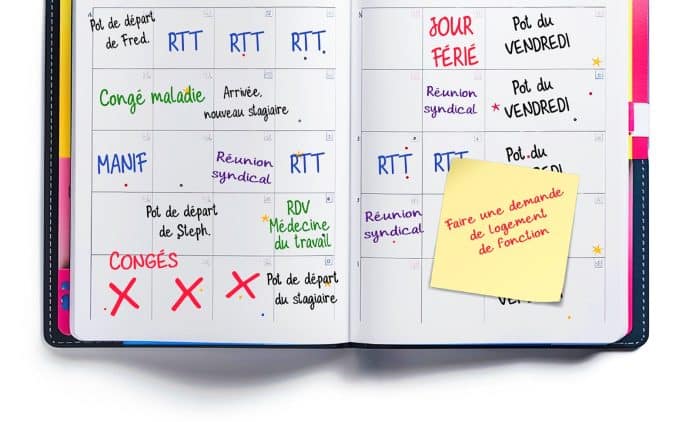 Pot de départ
de Fred.
RTT
RTT
RTT
JOUR
FÉRIÉ
Pot du
VENDREDI
Congé maladie
Arrivée,
nouveau stagiaire
Réunion
syndical
Pot du
VENDREDI
MANIF
Réunion
syndical
RTT
RTT
RTT
Pot du
Pot de départ
de Steph.
RDV
Médecine
du travail
Réunion
syndical
Faire une demande
de logement
de fonction
CONGÉS
X X X
Pot de départ
du stagiaire
VENDREDI